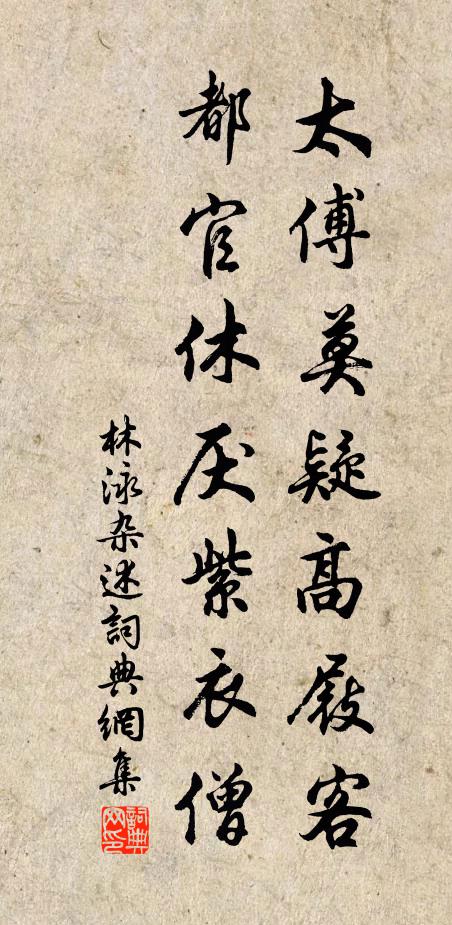 太傅莫疑高屐客
都官休厌紫衣僧
林泳杂述詞典網集
詞典網印